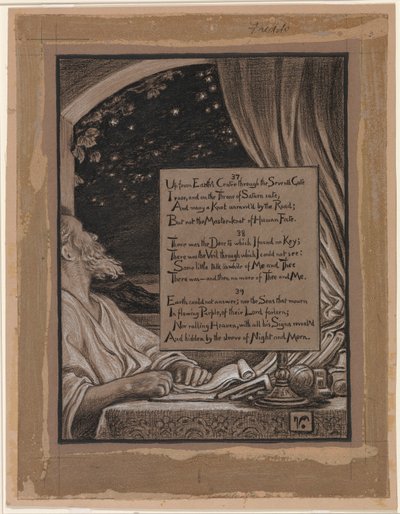 37
Up from Earth's Centre through the Seventh Gate
I rose, and on the Throne of Saturn sate;
And many a Knot unravel'd by the Road;
But not the Master-knot of Human Fate.
38
There was the Door to which I found no Key;
There was the Veil through which I could not see:
Some little talk awhile of Me and Thee
There was—and then no more of Thee and Me.
39
Earth could not answer; nor the Seas that mourn
In flowing Purple, of their Lord forlorn;
Nor rolling Heaven, with all his Signs reveal'd
And hidden by the sleeve of Night and Morn.
V.